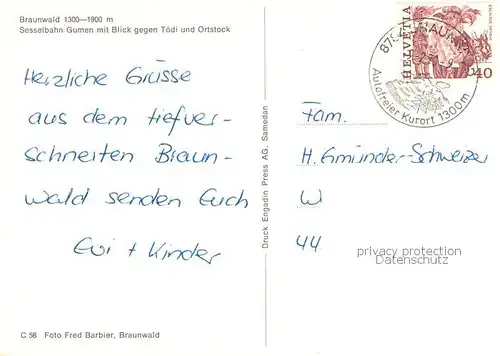 Braunwald 1300—1900 m
Sesselbahn Gumen mit Blick gegen Tödi und Ortstock
Herzliche Grüsse
aus dem tiefver-
schneiten Braun-
wald senden Euch
Evi + Kinder
C 58 Foto Fred Barbier, Braunwald
Druck Engadin Press AG, Samedan
HELVETIA
40
Autofreier Kurort 1300m
Fam.
H. Gmünder-Schweizer
W
44
privacy protection
Datenschutz